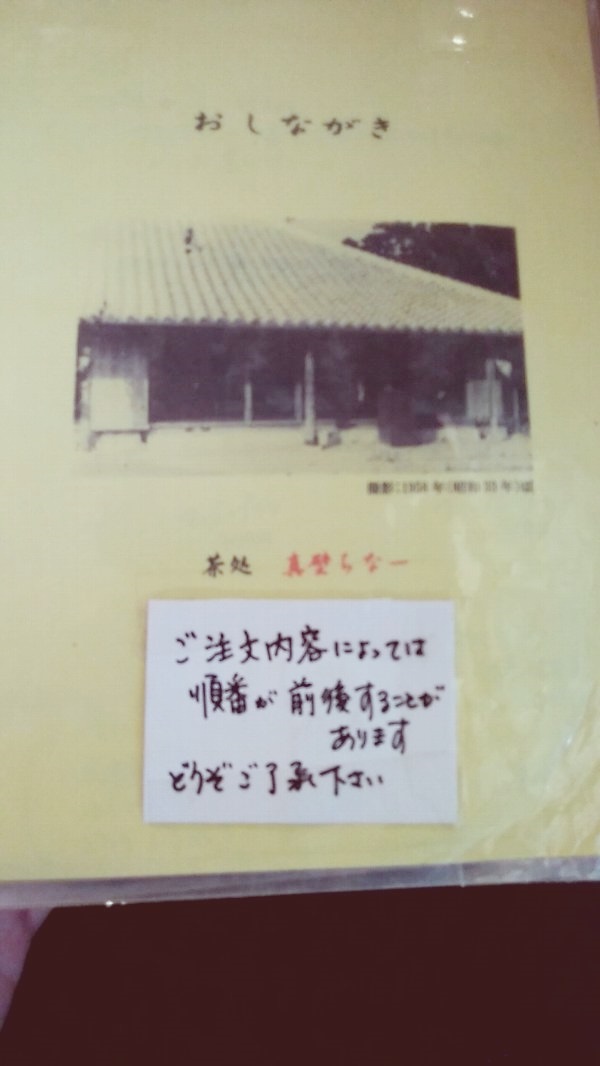 おしながき
茶処 真壁ちなー
ご注文内容によっては
順番が前後することが
あります
どうぞご了承下さい